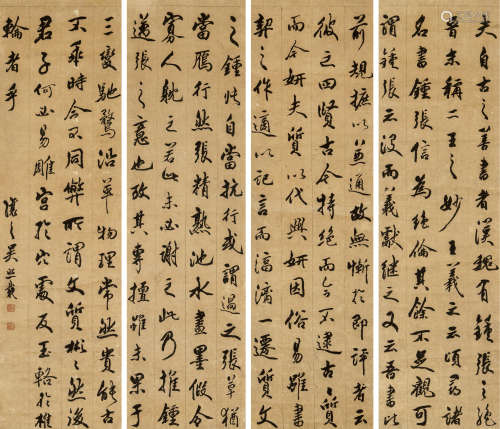 夫自古之善書者漢魏有鍾張之絕
晉末稱二王之妙王羲之云頃尋諸
名書鍾張信為絕倫其餘不足觀可
謂鍾張云沒而羲獻繼之又云吾書比
前規摭以兼通故無慚於即評者云
彼之四賢古今特絕而今不逮古古質
而今妍夫質以代興妍因俗易雖書
契之作適以記言而淳漓一遷質文
之鍾自當抗行或謂過之張草猶
當鴈行然張精熟池水盡墨假令
寡人耽之若此未必謝之此乃推鍾
邁張之意也考其專擅雖未果于
三變馳騖沿革物理常然貴能古
不乖時今不同弊所謂文質彬彬然後
君子何必易雕宮於穴處反玉輅於椎
輪者乎
讓之吳熙載